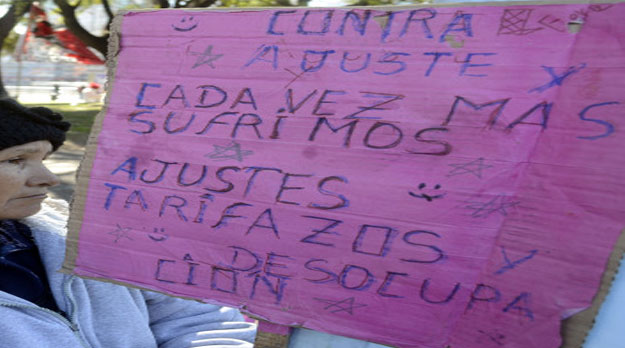 CONTRA
AJUSTE Y
CADA VEZ MAS
SUFRIMOS
AJUSTES
TARIFAZOS Y
DESOCUPA
CION